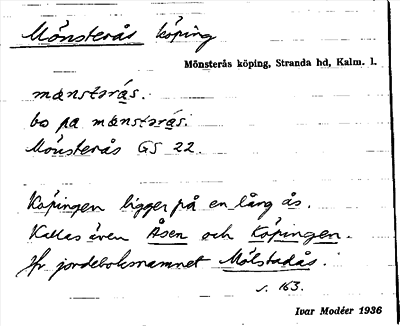 Mönsterås köping
Mönsterås köping, Stranda hd, Kalm. l.
mønstərås.
bo på mønstərås.
Mönsterås GS 22.
Köpingen ligger på en lång ås.
Kallas även Åsen och Köpingen.
Jfr jordeboksnamnet Mölstadås.
s. 163.
Ivar Modéer 1936